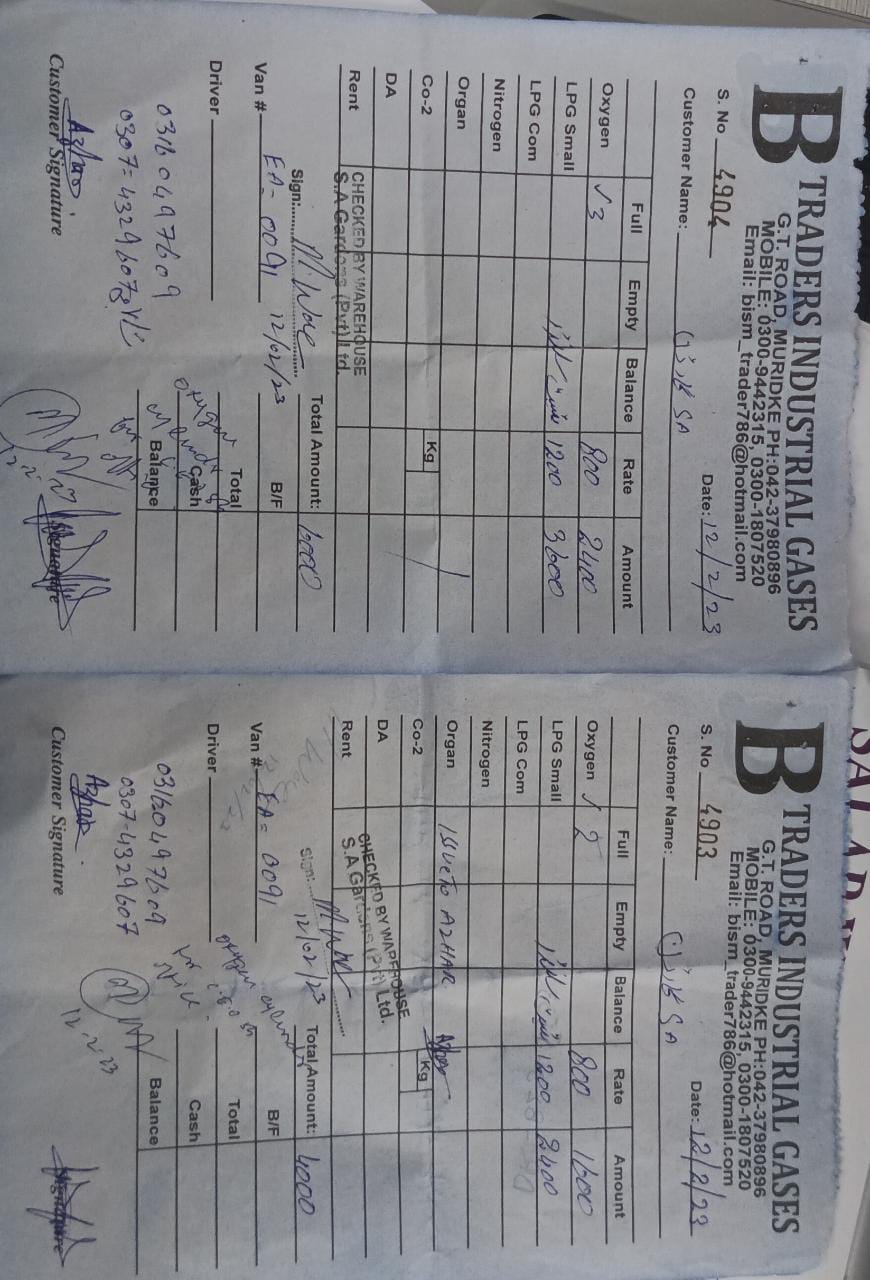 B TRADERS INDUSTRIAL GASES
G.T. ROAD, MURIDKE PH:042-37980896
MOBILE: 0300-9442315, 0300-1807520
Email: bism_trader786@hotmail.com
S. No 4904 Date: 12/2/23
Customer Name: SA
Full Empty Balance Rate Amount
Oxygen √3 800 2400
LPG Small 1200 3600
LPG Com
Nitrogen
Organ
Co-2 Kg
DA
Rent
CHECKED BY WAREHOUSE
S.A Gardens (Pvt) Ltd.
Sign:
Total Amount: 6000
Van # EA- 0091 12/02/23 B/F
Driver Total
03160497609 Cash
0307-4329607 Balance
Azhar
Customer Signature Signature
B TRADERS INDUSTRIAL GASES
G.T. ROAD, MURIDKE PH:042-37980896
MOBILE: 0300-9442315, 0300-1807520
Email: bism_trader786@hotmail.com
S. No 4903 Date: 12/2/23
Customer Name: SA
Full Empty Balance Rate Amount
Oxygen √ 2 800 1600
LPG Small 1200 2400
LPG Com
Nitrogen
Organ ISSUE TO AZHAR
Co-2 Kg
DA
Rent
CHECKED BY WAREHOUSE
S.A Gardens (Pvt) Ltd.
Sign:
12/02/23 Total Amount: 4000
Van # EA= 0091 B/F
Driver Total
03160497609 Cash
0307-4329607 Balance
12-2-23
Azhar
Customer Signature Signature